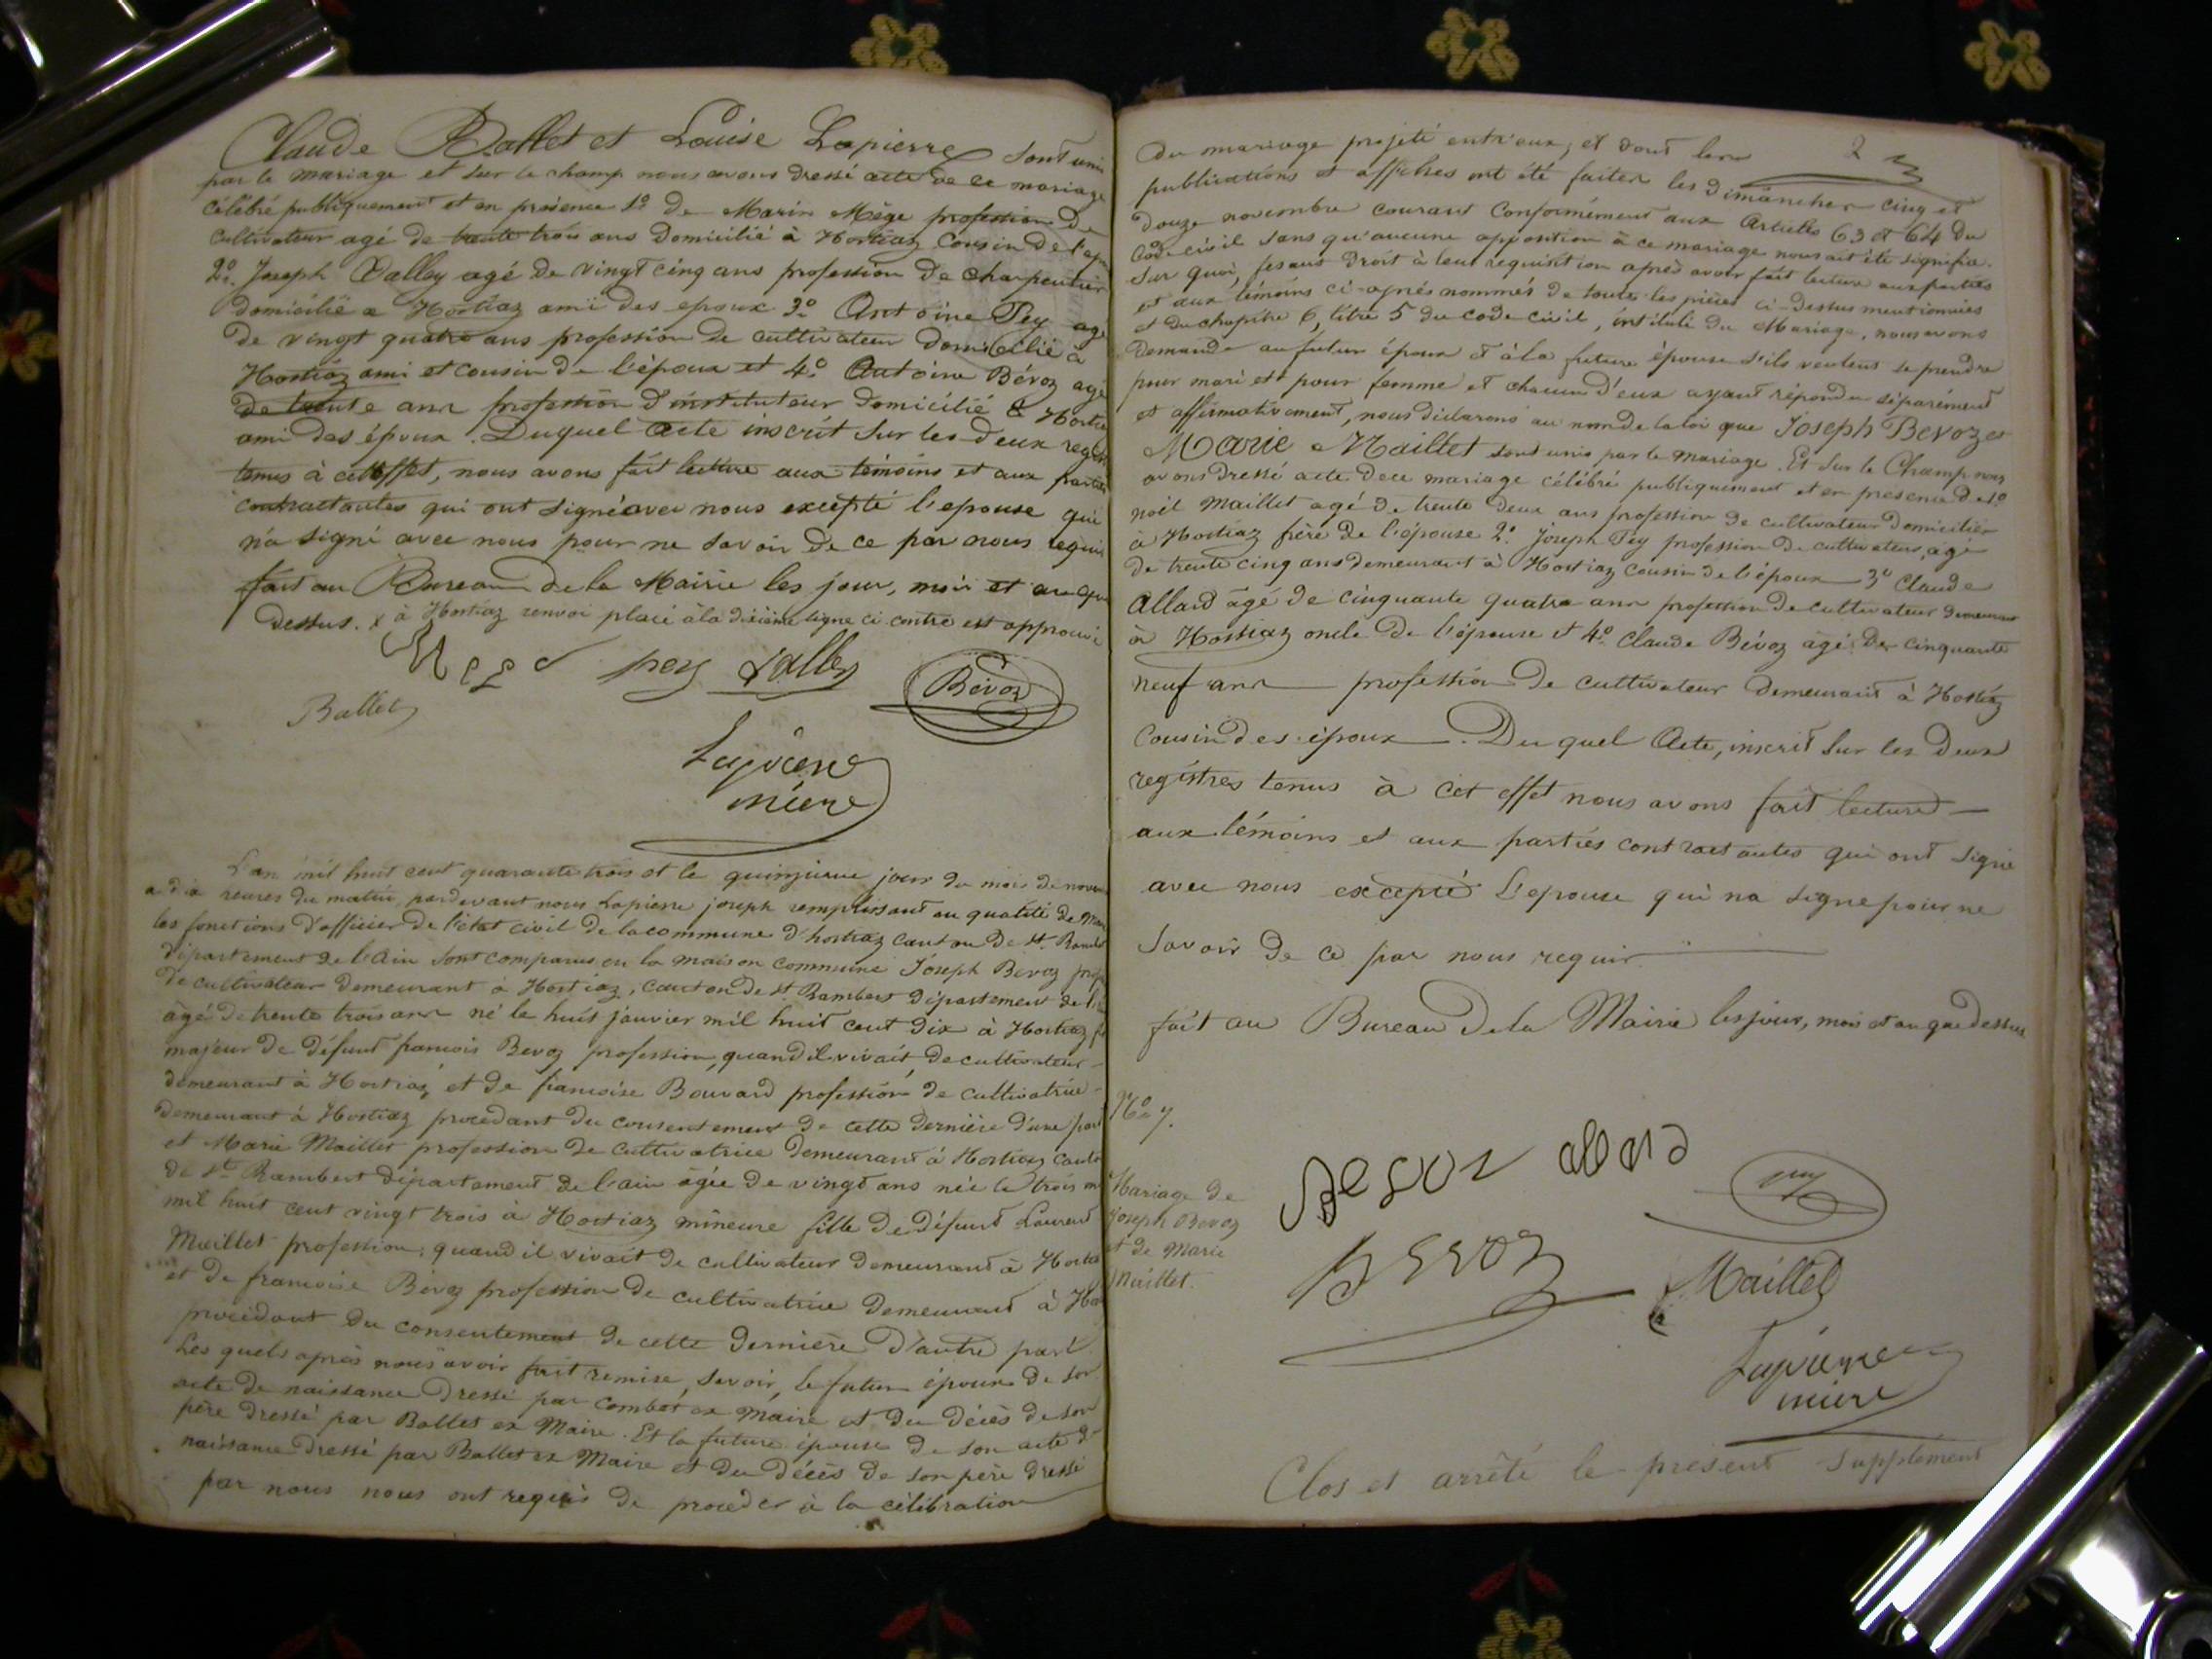 Claude Ballet et Louise Lapierre sont unis
par le mariage et sur le champ nous avons dressé acte de ce mariage
célébré publiquement et en présence 1º de Marin Mège profession de
cultivateur agé de trente trois ans domicilié à Hostiaz cousin de l'ep
2º. Joseph Dalley agé de vingt cinq ans profession de charpentier
domicilié a Hostiaz ami des epoux 3º Antoine Pey agé
de vingt quatre ans profession de cultivateur domicilié à
Hostiaz ami et cousin de l'époux et 4º. Antoine Bévoz agé
de trente ans profession d'instituteur domicilié à Hostia
ami des époux. Duquel acte inscrit sur les deux regis
tenus à cet effet, nous avons fait lecture aux témoins et aux parties
contractantes qui ont signé avec nous excepté l'epouse qui
n'a signé avec nous pour ne savoir de ce par nous requis
fait au Bureau de la Mairie les jour, mois et an que
dessus. x à Hostiaz renvoi placé à la dixième ligne ci contre est approuvé
Mege pey Dalley Bévoz
Ballet
Lapierre
maire
L'an mil huit cent quarante trois et le quinzième jour du mois de novem
a dix heures du matin, pardevant nous Lapierre joseph remplissant en qualité de Mai
les fonctions d'officier de l'état civil de la commune d'hostiaz canton de St. Rambe
département de l'Ain sont comparus en la maison commune Joseph Bevoz prof
de cultivateur demeurant a Hostiaz, canton de St. Rambert département de l'
âgé de trente trois ans né le huit janvier mil huit cent dix à Hostiaz f
majeur de défunt francois Bevoz profession, quand il vivait, de cultivateur
demeurant à Hostiaz, et de francoise Bouvard profession de cultivatrice
demeurant à Hostiaz procedant du consentement de cette dernière d'une part
et Marie Maillet profession de cultivatrice demeurant à Hostiaz canto
de St. Rambert département de l'ain âgée de vingt ans née le trois m
mil huit cent vingt trois à Hostiaz mineure fille de défunt Laurent
Maillet profession, quand il vivait de cultivateur demeurant à Hostia
et de francoise Bevoz profession de cultivatrice demeurant à Hos
procédant du consentement de cette dernière d'autre part.
Les quels après nous avoir fait remise, savoir, le futur époux de son
acte de naissance dressé par Combet ex Maire et du décès de son
père dressé par Ballet ex Maire. Et la future épouse de son acte de
naissance dressé par Ballet ex Maire et du décès de son père dressé
par nous nous ont requis de procéder à la célébration
2
du mariage projeté entr'eux, et dont les
publications et affiches ont été faites les dimanches cinq et
douze novembre courant conformément aux Articles 63 et 64 du
Code civil sans qu'aucune opposition à ce mariage nous ait été signifiée.
Sur quoi, fesant droit à leur requisition après avoir fait lecture aux parties
et aux témoins ci-après nommés de toutes les pièces ci-dessus mentionnées
et du chapitre 6, titre 5 du code civil, intitulé du Mariage, nous avons
demandé au futur époux et à la future épouse s'ils veulent se prendre
pour mari et pour femme et chacun d'eux ayant répondu séparément
et affirmativement, nous déclarons au nom de la loi que Joseph Bevoz et
Marie Maillet sont unis par le mariage. Et sur le Champ nous
avons dressé acte de ce mariage célébré publiquement et en présence de 1º
noël Maillet agé de trente deux ans profession de cultivateur domicilier
à Hostiaz frère de l'épouse 2º. Joseph Pey profession de cultivateur, agé
de trente cinq ans demeurant à Hostiaz cousin de l'époux 3º Claude
Allard âgé de cinquante quatre ans profession de cultivateur demeurant
à Hostiaz oncle de l'épouse et 4º. Claude Bévoz âgé de cinquante
neuf ans profession de cultivateur demeurant à Hostiaz
Cousin des époux. Du quel Acte, inscrit sur les deux
registres tenus à cet effet nous avons fait lecture
aux témoins et aux parties contractantes qui ont signé
avec nous excepté l'epouse qui na signe pour ne
savoir de ce par nous requis
fait au Bureau de la Mairie les jour, mois et an que dessus
Nº 7.
Mariage de
Joseph Bevoz
et de Marie
Maillet.
Bevoz allard
pey
Bevoz
Maillet
Lapierre
maire
Clos et arrêté le présent supplément